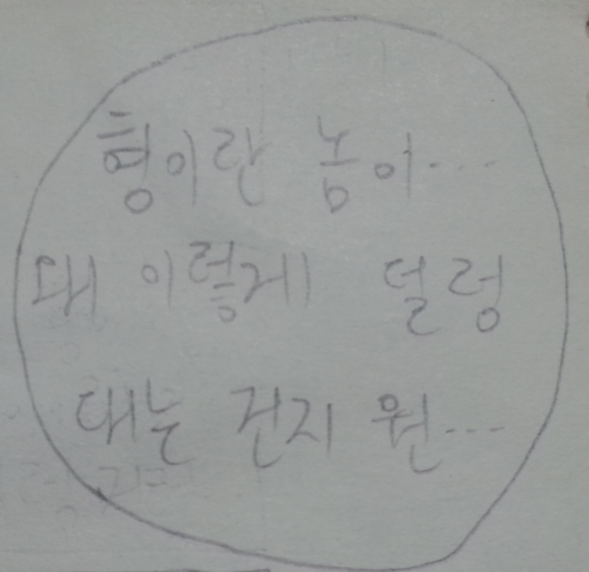 형이란 놈이...
왜 이렇게 덜렁
대는 건지 원...